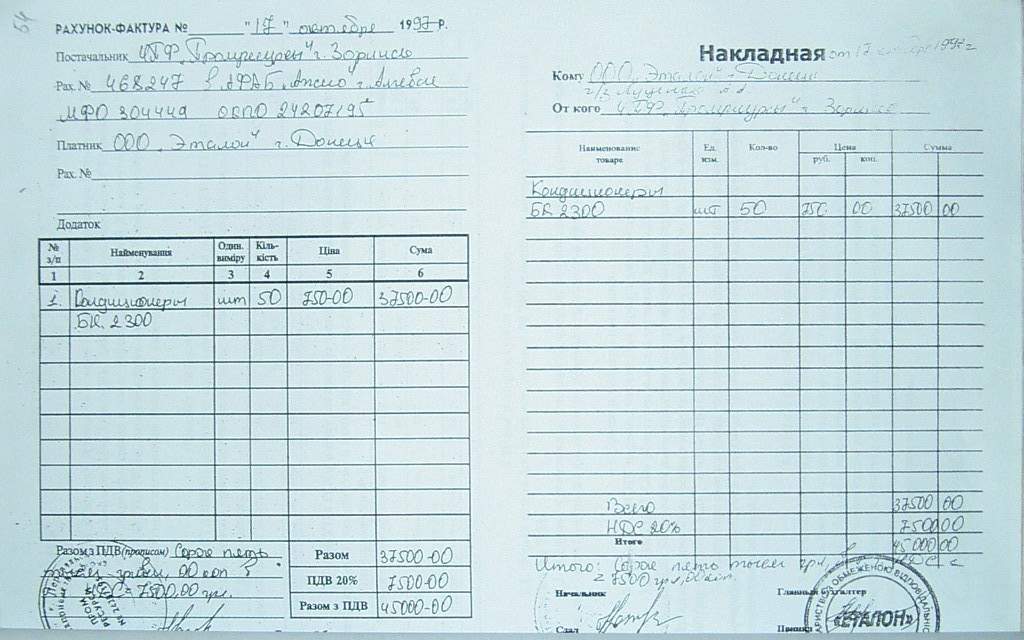 54
РАХУНОК-ФАКТУРА № "17" октября 1997 р.
Постачальник ЧПФ "Промресурсы" г. Зоринск
Рах. № 468247 в АФАБ г. Алчевск
МФО 304449 ОКПО 24207195
Платник ООО "Эталон" г. Донецк
Рах. №
Додаток
№ з/п Найменування Один. виміру Кіль-кість Ціна Сума
1 2 3 4 5 6
1. Кондиционеры шт 50 750-00 37500-00
БК 2300
Разом з ПДВ (прописом) Сорок пять
тысяч гривен, 00 коп
НДС = 7500,00 грн.
Разом 37500-00
ПДВ 20% 7500-00
Разом з ПДВ 45000-00
Накладная от 17 октября 1997 г
Кому ООО "Эталон" г. Донецк
От кого ЧПФ "Промресурсы" г. Зоринск
Наименование товаре Ед. изм. Кол-во Цена Сумма
руб. коп.
Кондиционеры
БК 2300 шт 50 750 00 37500 00
Всего 37500 00
НДС 20% 7500 00
Итого 45000 00
Итого: Сорок пять тысяч грн.
= 7500 грн, 00 коп.
Начальник Главный бухгалтер
Сдал Принял
«ЕТАЛОН»